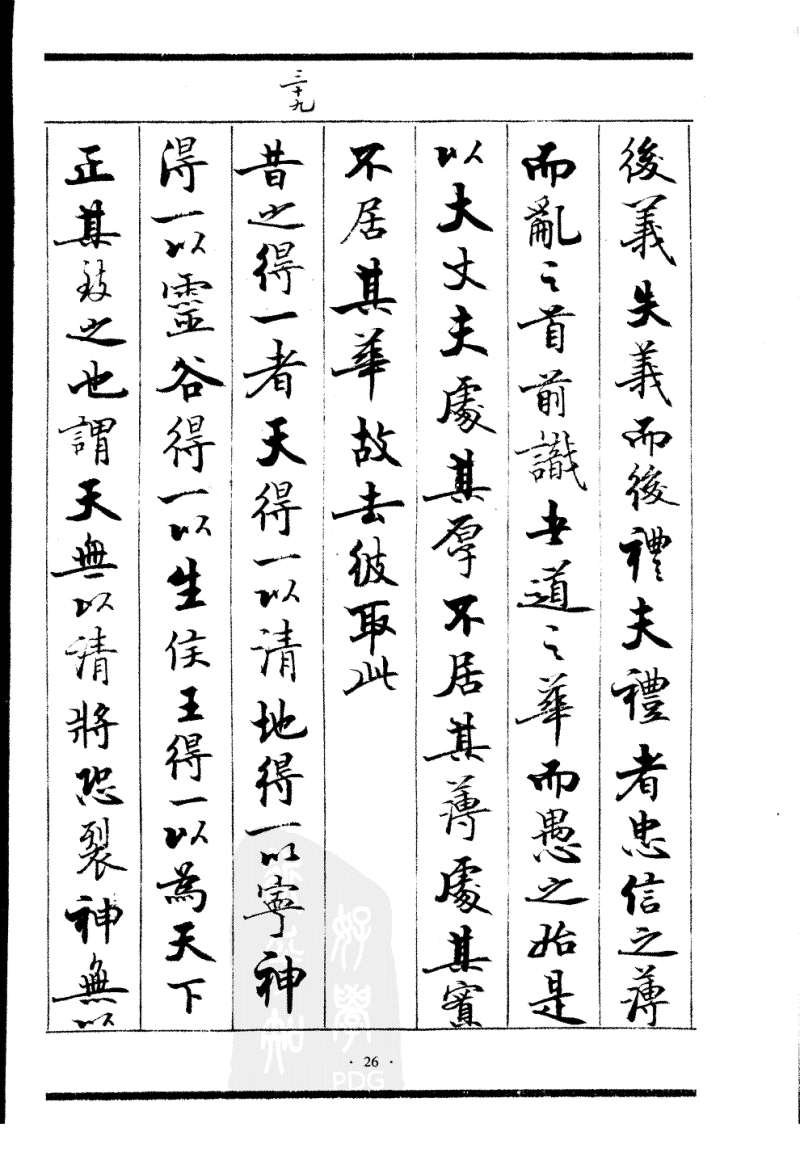 後義失義而後禮夫禮者忠信之薄
而亂之首前識者道之華而愚之始是
以大丈夫處其厚不居其薄處其實
不居其華故去彼取此
三十九
昔之得一者天得一以清地得一以寧神
得一以靈谷得一以生侯王得一以為天下
正其致之也謂天無以清將恐裂神無以
· 26 ·
好學
PDG